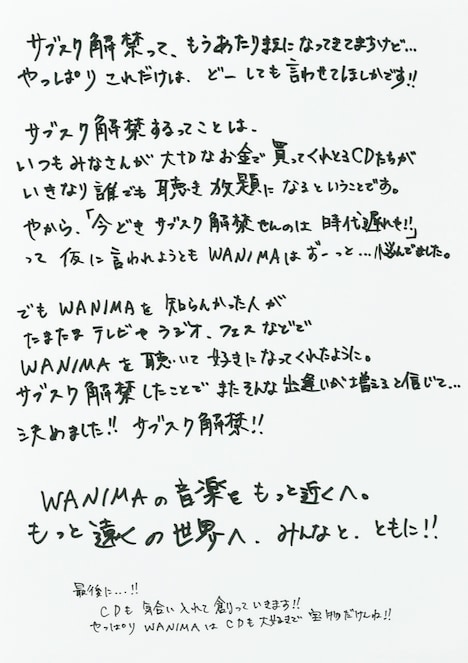 サブスク解禁って、もうあたりまえになってきてますけど…
やっぱり これだけは、どーしても言わせてほしかです!!
サブスク解禁するってことは、
いつもみなさんが大切なお金で買ってくれとるCDたちが
いきなり誰でも聴き放題になるということです。
やから、「今どき サブスク解禁せんのは 時代遅れや!!」
って 仮に言われようとも WANIMAは ずーっと…悩んでました。
でも WANIMAを 知らんかった人が
たまたま テレビや ラジオ、フェス などで
WANIMAを 聴いて 好きになってくれたように。
サブスク解禁したことで またそんな出逢いが増えると信じて…
決めました!! サブスク解禁!!
WANIMAの音楽を もっと近くへ。
もっと遠くの世界へ、みんなと、ともに!!
最後に…!!
CDも 気合い入れて 創っていきます!!
やっぱり WANIMAは CDも大好きで 宝物だけんね!!